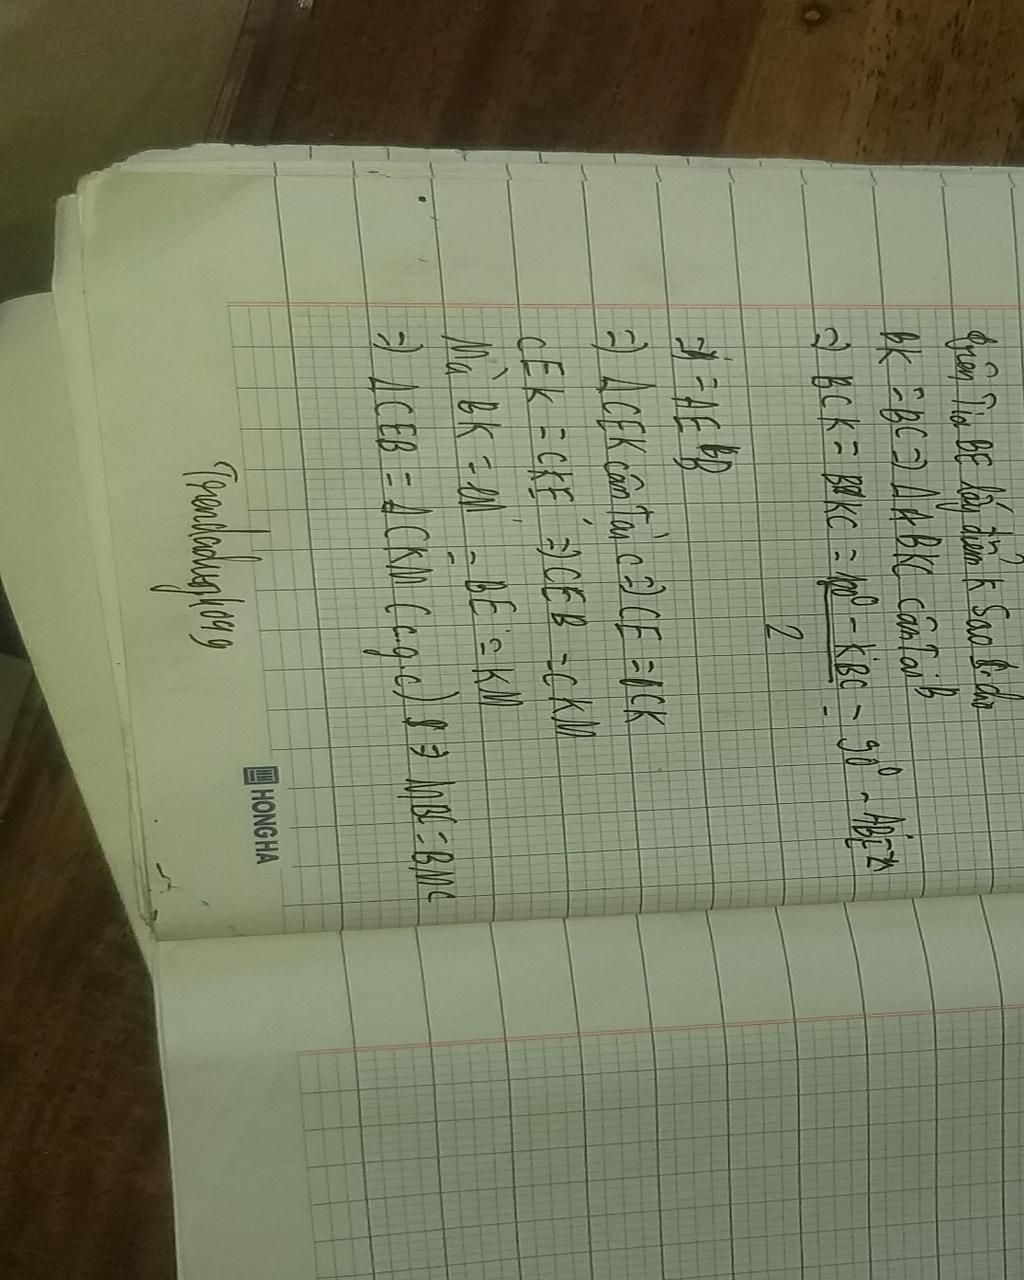 trên Tia BE lấy điểm K Sao cho
BK = BC => Δ ABKC cân Tại B
=> BCK = BKC = 180⁰ - KBC = 90⁰ - ABE =
2
= AEB
=> ΔCEK cân Tại C => CE = CK
CEK = CKE => CEB = CKM
Mà BK = EM = BE = KM
=> ΔCEB = ΔCKM (c.g.c) => MBC = BMC
HONGHA